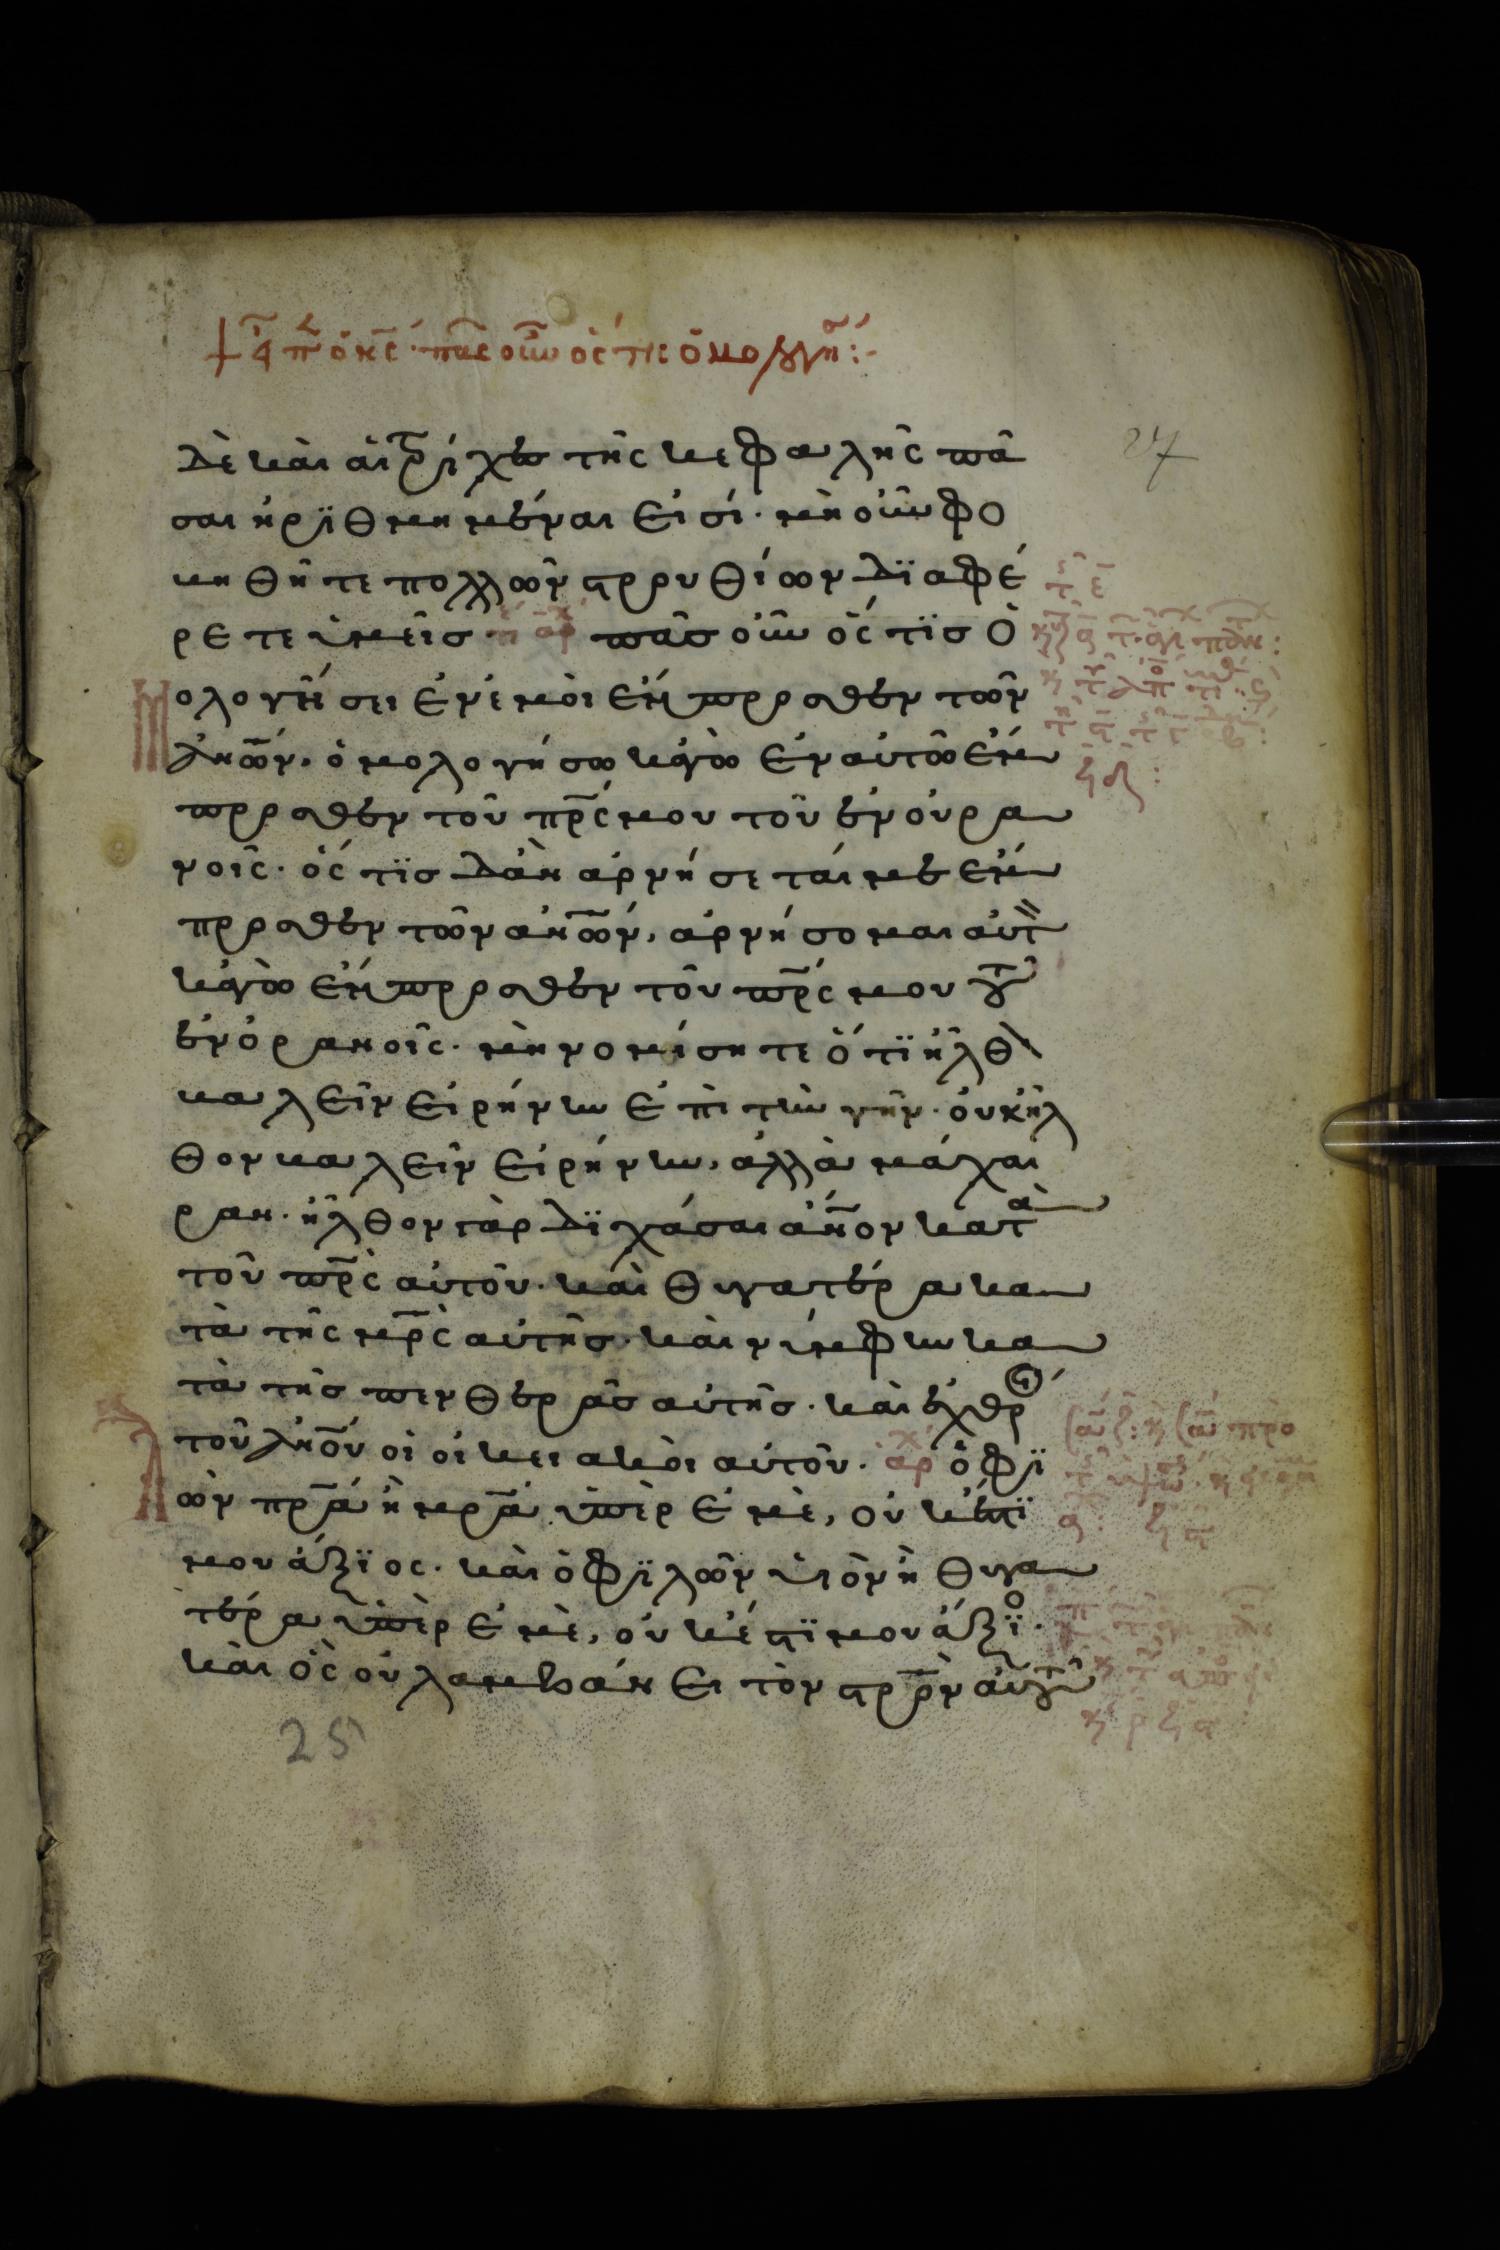 εἶπεν ὁ κς· πᾶς οὖν ὅς τις ὁμολογη:-
27
δὲ καὶ αἱ τρίχες τῆς κεφαλῆς πᾶ
σαι ἠρϊθμημέναι εἰσί· μὴ οὖν φο
βηθῆτε πολλῶν στρουθίων δϊαφέ
ρετε ὑμεῖσ πᾶσ οὖν ὅς τϊσ ὁ
μολογήσει ἐν ἐμοὶ ἔμπροσθεν τῶν
ἀνων, ὁμολογήσω κἀγὼ ἐν αὐτῶ ἔμ
προσθεν τοῦ πρς μου τοῦ ἐν οὐρα
νοῖς· ὅς τϊσ δἂν ἀρνήσεταί με ἔμ
προσθεν τῶν ανων, ἀρνήσομαι αὐτ
κἀγὼ ἔμπροσθεν τοῦ πρς μου τοῦ
ἐν ὀρανοῖς· μὴ νομίσητε ὅτϊ ἦλθ
βαλεῖν εἰρήνην ἐπὶ τὴν γῆν· οὐκ ἦλ
θον βαλεῖν εἰρήνην, ἀλλὰ μάχαι
ραν· ἦλθον γὰρ δϊχάσαι ανον κατὰ
τοῦ πρς αὐτοῦ· καὶ θυγατέρα κα
τὰ τῆς μρς αὐτῆσ· καὶ νύμφην κα
τὰ τῆσ πενθερᾶσ αὐτῆσ· καὶ ἐχθρ
τοῦ ανου οἱ οἰκειακοὶ αὐτοῦ· αρχ ὁ φϊ
λῶν πρα ἢ μρα ὑπὲρ ἐμὲ, οὐκ ἔστϊ
μου ἄξϊος· καὶ ὁ φϊλῶν υἱὸν ἢ θυγα
τέρα ὑπὲρ ἐμὲ, οὐκ ἔστϊ μου ἄξϊο·
καὶ ὃς οὐ λαμβάνει τὸν στρον αὐτοῦ
25